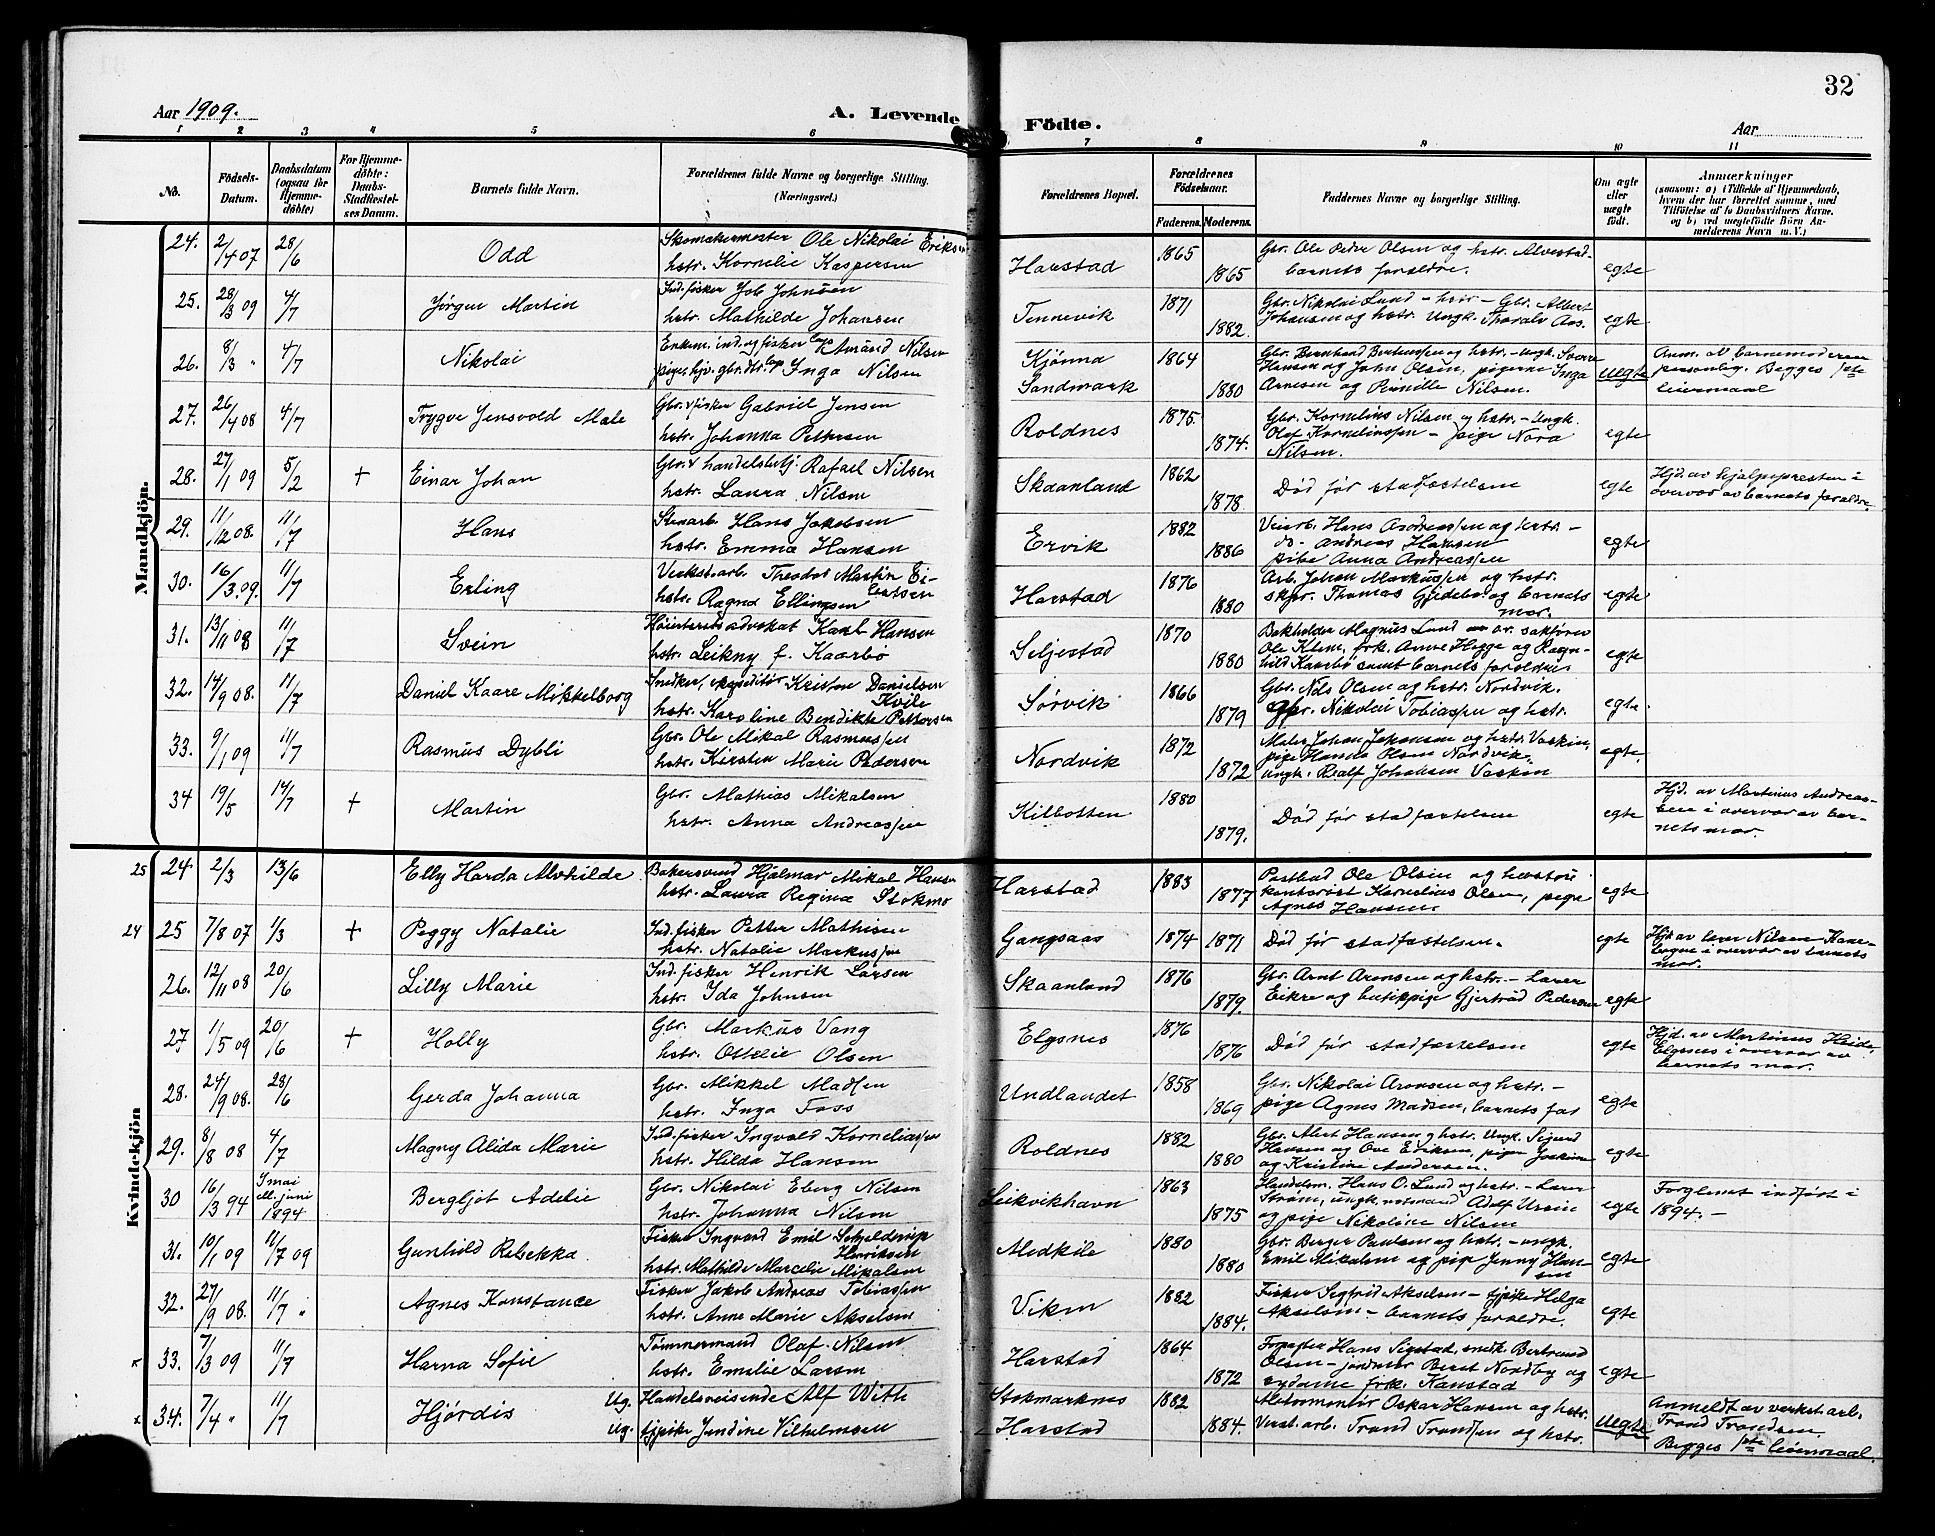 32
Aar 1909.
A. Levende Födte.
Aar
1 2 3 4 5 6 7 8 9 10 11
No.
Födsels-Datum.
Daabsdatum (ogsaa for Hjemme-döbte)
For Hjemme-döbte: Daabs-Stadfæstel-ses Datum.
Barnets fulde Navn.
Forældrenes fulde Navne og borgerlige Stilling.
(Næringsvei.)
Forældrenes Bopæl.
Forældrenes Födselsaar.
Faderens. Moderens.
Faddernes Navne og borgerlige Stilling.
Om ægte eller uægte födt.
Anmærkninger
(saasom: a) i Tilfælde af Hjemmedaab,
hvem der har forrettet samme, med
Tilföielse af to Daabsvidners Navne.
og b) ved uægtefödte Börn An-
melderens Navn m. V.)
Mandkjön.
24. 2/4 07 28/6 Odd Skomakermester Ole Nikolai Eriksen
hstr. Kornelie Kaspersen Harstad 1865 1865 Gbr. Ole Peder Olsen og hstr. Alvestad-
barnets forældre. egte
25. 28/3 09 4/7 Jörgen Martin Ind. fisker Job Johnsen
hstr. Mathilde Johansen Tennevik 1871 1882. Gbr. Nikolai Lund - hstr - Gbr. Albert
Johansen og hstr. Ungk. Thoralv Aas. egte
26. 8/3 " 4/7 Nikolai Enkem. ind. og fisker Amund Nilsen
pige, hjv. gbr. dtr. Inga Nilsen Kjönna
Sandmark 1864 1880 Gbr. Bernhard Berntssen og hstr. - ungk. Sverre
Hansen og John Olsen, pigerne Inga
Arnesen og Pernille Nilsen. uegte Anm. av barnemoderen
personlig. Begges 1ste
leiermaal
27. 26/4 08 4/7 Trygve Jensvold Male Gbr. & fisker Gabriel Jensen
hstr. Johanna Pettersen Roldnes 1875. 1874. Gbr. Kornelius Nilsen og hstr. - Ungk.
Olaf Korneliussen - pige Nora
Nilsen. egte
28. 27/1 09 5/2 + Einar Johan Gbr. & handelsbetj. Rafael Nilsen
hstr. Laura Nilsen Skaanland 1862 1878 Död för stadfæstelsen egte Hjd. av hjælpepresten i
overvær av barnets forældre.
29. 11/12 08. 11/7 Hans Stenarb. Hans Jakobsen
hstr. Emma Hansen Ervik 1882 1886 Veiarb. Hans Andreassen og hstr. -
do. Andreas Hansen
pike Anna Andreassen egte
30. 16/3 09. 11/7 Erling Verkst. arb. Theodor Martin Ei-
lertsen
hstr. Ragna Ellingsen Harstad 1876 1880 Arb. Johan Markussen og hstr.
skpr. Thomas Gjedebo og barnets
mor. egte
31. 13/11 08 11/7 Svein Höiesteretsadvokat Karl Hansen
hstr. Leikny f. Kaarbö Seljestad 1870 1880 Bokholder Magnus Lund - ov. sakförer
Ole Klem, frk. Anne Hegge og Ragn-
hild Kaarbö samt barnets forældre. egte
32. 14/9 08. 11/7 Daniel Kaare Mikkelborg Snedker, expeditör Kristen Danielsen
Kvile
hstr. Karoline Bendikte Pettersen Sörvik 1866 1879 Gbr. Nils Olsen og hstr. Nordvik.
gbr. Nikolai Tobiassen og hstr. egte.
33. 9/1 09 11/7 Rasmus Dybli Gbr. Ole Mikal Rasmussen
hstr. Kirsten Marie Pedersen Nordvik 1872 1872 Maler Johan Johansen og hstr. Vasken,
pige Hanna Olsen Nordvik,
ungk. Realf Johansen Vasken egte.
34 19/5 14/7 + Martin Gbr. Mathias Mikalsen
hstr. Anna Andreassen Kilbotten 1880 1879. Död för stadfæstelsen egte Hjd. av Martinus Andreas-
sen i overvær av bar-
nets mor.
Kvindekjön
25 24. 2/3 13/6 Elly Harda Alvhilde Bakersvend Hjalmar Mikal Hansen
hstr. Laura Regina Stokmo Harstad 1883 1877 Postbud Ole Olsen og hustru
kontorist Kornelius Olsen, pige
Agnes Hansen egte
24 25 7/8 07 1/3 + Peggy Natalie Ind. fisker Petter Mathisen
hstr. Natalie Markussen Gangsaas 1874 1871 Död för stadfæstelsen. egte Hjd. av lærer Nilsen Kane-
bogen i overvær av barnets
mor.
26. 12/11 08 20/6 Lilly Marie Ind. fisker Henrik Larsen
hstr. Ida Johnsen Skaanland 1876 1879. Gbr. Arnt Aronsen og hstr. - Lærer
Eikre og butikpige Gjertrud Pedersen egte
27 1/5 09 20/6 + Holly Gbr. Markus Vang
hstr. Ottelie Olsen Elgsnes 1876 1876 Död för stadfæstelsen egte Hjd. av Martinus Heide,
Elgsnes i overvær av
barnets mor.
28. 24/9 08. 28/6 Gerda Johanna Gbr. Mikkel Madsen
hstr. Inga Foss Undlandet 1858 1869 Gbr. Nikolai Aronsen og hstr. -
pige Agnes Madsen, barnets far egte
29. 8/8 08 4/7 Magny Alida Marie Ind. fisker Ingvald Korneliassen
hstr. Hilda Hansen Roldnes 1882 1880 Gbr. Alert Hansen og hstr. Ungk. Sigurd
Hansen og Ove Eriksen, piger Joakime
og Kristine Andersen. egte
30 16/3 94 I mai
ell. juni
1894 Bergljot Adelie Gbr. Nikolai Eberg Nilsen
hstr. Johanna Nilsen Leikvikhavn 1863 1875 Handelsm. Hans O. Lund og hstr. - Lærer
Ström, ungk. notmand Adolf Ursin
og pige Nikoline Nilsen egte Forglemt indfört i
1894. -
31. 10/1 09 11/7 09 Gunhild Rebekka Fisker Ingvard Emil Schjelderup
Henriksen
hstr. Mathilde Marcelie Mikalsen Medkile 1880 1880 Gbr. Berger Paulsen og hstr. - ungk.
Emil Mikalsen og pige Jenny Han-
sen egte
32. 27/9 08. 11/7 " Agnes Konstance Fisker Jakob Andreas Tobiassen
hstr. Anne Marie Akselsen Viken 1882 1884. Fisker Sigfrid Akselsen - tjpike Helga
Akselsen - barnets forældre. egte
33. 7/3 09 11/7 Harna Sofie Tömmermand Olaf Nilsen
hstr. Emilie Larsen Harstad 1864 1872 Forpagter Hans Sigstad, snedk. Bertrand
Olsen - jordmor Beret Nordby og
sydame frk. Kanstad egte
34. 7/4 " 11/7 Hjördis Ug. Handelsreisende Alf With
Ug. tjpike Jendine Vilhelmsen Stokmarknes
Harstad 1882 1884. Motormontör Oskar Hansen og hstr.
Verkst. arb. Trond Trondsen og hstr. uegte Anmeldt av verkst. arb.
Trond Trondsen.
Begges 1ste leiermaal.